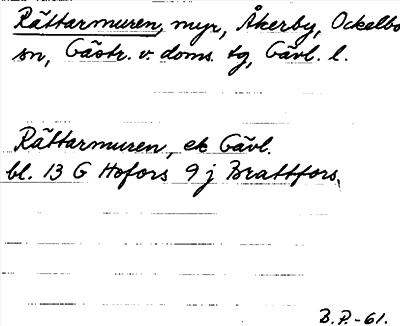 Rättarmuren, myr, Åkerby, Ockelbo
sn, Gästr. v. doms. tg, Gävl. l.
Rättarmuren, ek Gävl.
bl. 13 G Hofors 9 j Brattfors.
B.P.-61.